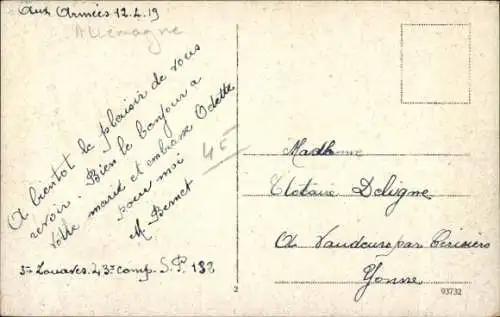 Aux Armées 12.4.19
Allemagne
A bientot le plaisir de vous
revoir. Bien le bonjour a
votre marie et embrasse Odette
pour moi
M Bernet
5e Zouaves 43e Comp. S.P. 132
4E
Madame
Clotaire Doligne
A Vaudeurs par Cerisiers
Yonne
2
93732